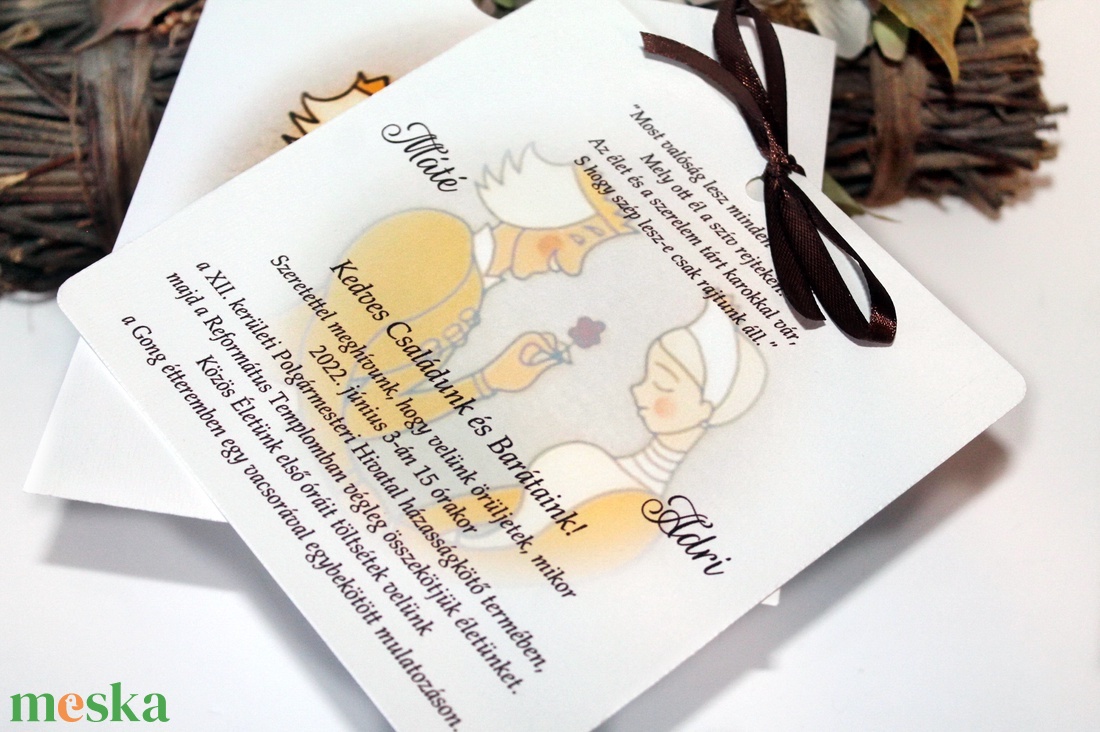 Máté
"Most valóság lesz minden,
Mely ott él a szív rejtekén.
Az élet és a szerelem tárt karokkal vár,
S hogy szép lesz-e csak rajtunk áll."
Kedves Családunk és Barátaink!
Szeretettel meghívunk, hogy velünk örüljetek, mikor
2022. június 3-án 15 órakor
a XII. kerületi Polgármesteri Hivatal házasságkötő termében,
majd a Református Templomban végleg összekötjük életünket.
Közös Életünk első óráit töltsétek velünk
a Gong étteremben egy vacsorával egybekötött mulatozáson.
Adri
meska